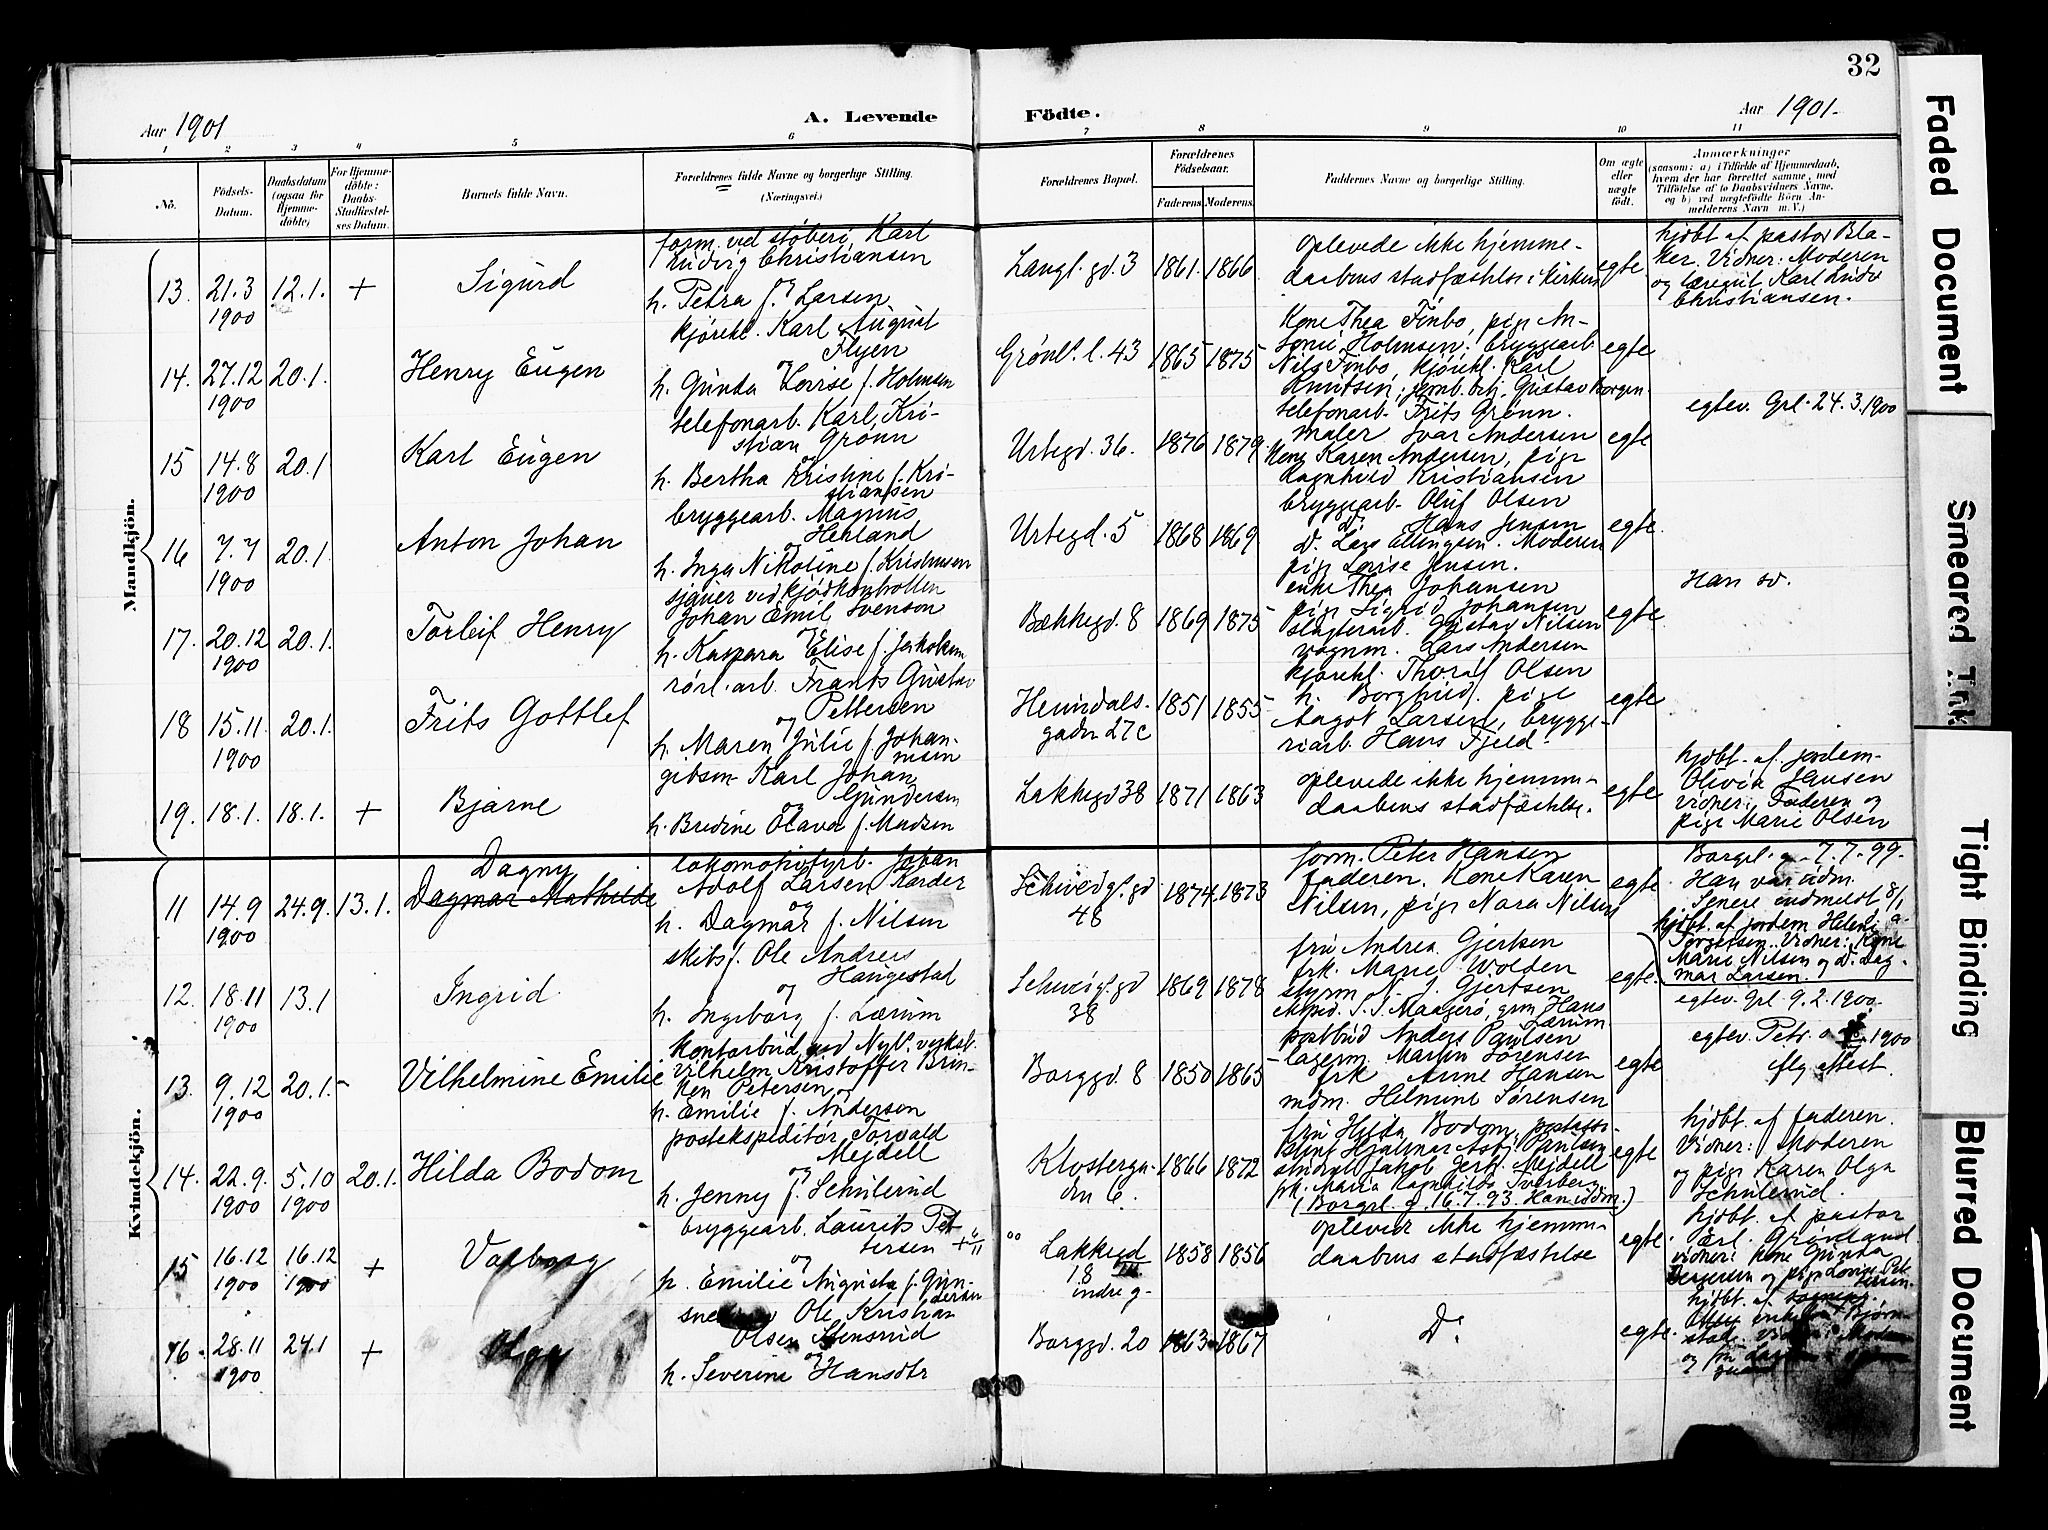 32
Aar 1901
A. Levende Födte.
Aar 1901.
1 2 3 4 5 6 7 8 9 10 11
No.
Födsels-Datum.
Daabsdatum (ogsaa for Hjemme-döbte)
For Hjemme-döbte: Daabs-Stadfæstel-ses Datum.
Barnets fulde Navn.
Forældrenes fulde Navne og borgerlige Stilling.
(Næringsvei.)
Forældrenes Bopæl.
Forældrenes Födselsaar.
Faderens. Moderens.
Faddernes Navne og borgerlige Stilling.
Om ægte eller uægte födt.
Anmærkninger
(saasom: a) i Tilfælde af Hjemmedaab, hvem der har forrettet samme, med Tilföielse af to Daabsvidners Navne, og b) ved uægtefödte Börn An-melderens Navn m. V.)
Mandkjön.
13. 21.3 1900 12.1. + Sigurd
form. ved støberi, Karl
Ludvig Christiansen
og
h. Petra f. Larsen
Langl. gd. 3 1861. 1866
oplevede ikke hjemme-
daabens stadfæstelse i kirken
egte
hjdbt. af pastor Bla-
ker. Vidner: Moderen
og læregut Karl Ludv
Christiansen.
14. 27.12 1900 20.1. Henry Eugen
kjørekl. Karl August
Flyen
og
h. Gunda Lovise f. Holmsen
Grønl. l. 43 1865 1875
Kone Thea Finbo, pige An-
tonie Holmsen. bryggearb
Nils Finbo, kjørekl. Karl
Knutsen, jernb. btj. Gustav Borgen
egte
15 14.8 1900 20.1 Karl Eugen
telefonarb. Karl Kri-
stian Grønn
og
h. Bertha Kristine f. Kri-
stiansen
Urtegd. 36. 1876 1879.
telefonarb. Frits Grønn.
maler Ivar Andersen
Kone Karen Andersen, pige
Ragnhild Kristiansen
egte
egtev. Grl. 24.3.1900
16 7.7 1900 20.1. Anton Johan
bryggearb. Magnus
Henland
og
h. Inga Nikoline f. Kristensen
Urtegd. 5 1868 1869
bryggearb. Oluf Olsen
D. Hans Jensen
D. Lars Ellingsen. Moderen
pige Lovise Jensen.
egte.
17. 20.12 1900 20.1. Torleif Henry
sjauer ved kjødkontrollen
Johan Emil Svenson
og
h. Kaspara Elise f. Jakobsen
Bækkegd. 8 1869 1875
enke Thea Johansen
pige Sigrid Johansen
slagterarb. Gustav Nilsen
vognm. Lars Andersen
egte.
Han sv.
18 15.11 1900 20.1. Frits Gottlef
rørl. arb. Frants Gustav
Pettersen
og
h. Maren Julie f. Johan-
nesen
Heimdals-
gaden 27c 1851 1855
kjørekl. Thoralf Olsen
h. Borghild. pige
Aagot Larsen, brygge-
riarb. Hans Fjeld.
egte
19. 18.1. 18.1. + Bjarne
gibsm. Karl Johan
Gundersen
og
h. Bredine Olava f. Madsen
Lakkegd 38 1871 1863
oplevede ikke hjemme-
daabens stadfæstelse.
egte
hjdbt. af jordem-
Olivia Jensen
vidner: Faderen og
pige Marie Olsen
Kvindekjön.
11 14.9 1900 24.9. 13.1. Dagny
Dagmar Mathilde
lokomotivfyrb. Johan
Adolf Larsen Karder
og
h. Dagmar f. Nilsen
Schweigs. gd
48 1874. 1873
form. Peter Hansen
Faderen. Kone Karen
Nilsen, pige Nora Nilsen
egte
Borgl. g. 7.7.99.
Han var udm.
Senere indmeldt 8/1
hjdbt. af jordem Helene
Jørgensen. Vidner: Kone
Marie Nilsen og D. Dag-
mar Larsen.
12. 18.11 1900 13.1 Ingrid
skibsf. Ole Andreas
Haugestad
og
h. Ingeborg f. Lærum
Schweigs. gd
38 1869 1878
fru Andrea Gjertsen
frk. Marie Wolden
styrm N. J. Gjertsen
Hans
Lærum
egte.
egtev. Grl. 9.2.1900.
13. 9.12 1900 20.1. Vilhelmine Emilie
Kontorbud ved Nyl. verksl.
Vilhelm Kristoffer Brin-
ken Petersen
og
h. Emilie f. Anderson
Borggd. 8 1850 1865
postbud Anders Paulsen
lagerm. Martin Sørensen
frk Anne Hansen
mdm. Helmine Sørensen
egte
egtev. Petr. 1900
flg attest.
14. 22.9. 1900 5.10 1900 20.1. Hilda Bodom
postekspeditør Torvald
Mejdell
og
h. Jenny f. Schulerud
Klosterga-
den 6. 1866 1872
fru Hilda Bodom, postass-
stent Hjalmar Asbj. Paulsen
student Jakob Gerh. Mejdell
frk. Maria Ragnhilda Tverberg
(Borgrl. g. 16.7.93. Han iddm.)
egte
hjdbt. af faderen.
Vidner: Moderen
og pige Karen Olga
Schulerud.
15 16.12 1900 16.12 1900 + Valborg
bryggearb. Laurits Pet-
tersen
og
h. Emilie Augusta f. Gun-
dersen
Lakkegd
18
indre g. 1858 1856
oplever ikke hjemme-
daabens stadfæstelse
egte.
hjdbt. af pastor
Carl Grøndland
vidner: kone Gunda
og pige Lovise Pet-
tersen.
16. 28.11 1900 24.1 + Olga
Ole Kristian
Olsen Stensrud
og
h. Severine Hansdtr
Borggd. 20 1863 1867
D.
egte.
hjdbt. af
Faded Document
Smeared Ink
Tight Binding
Blurred Document